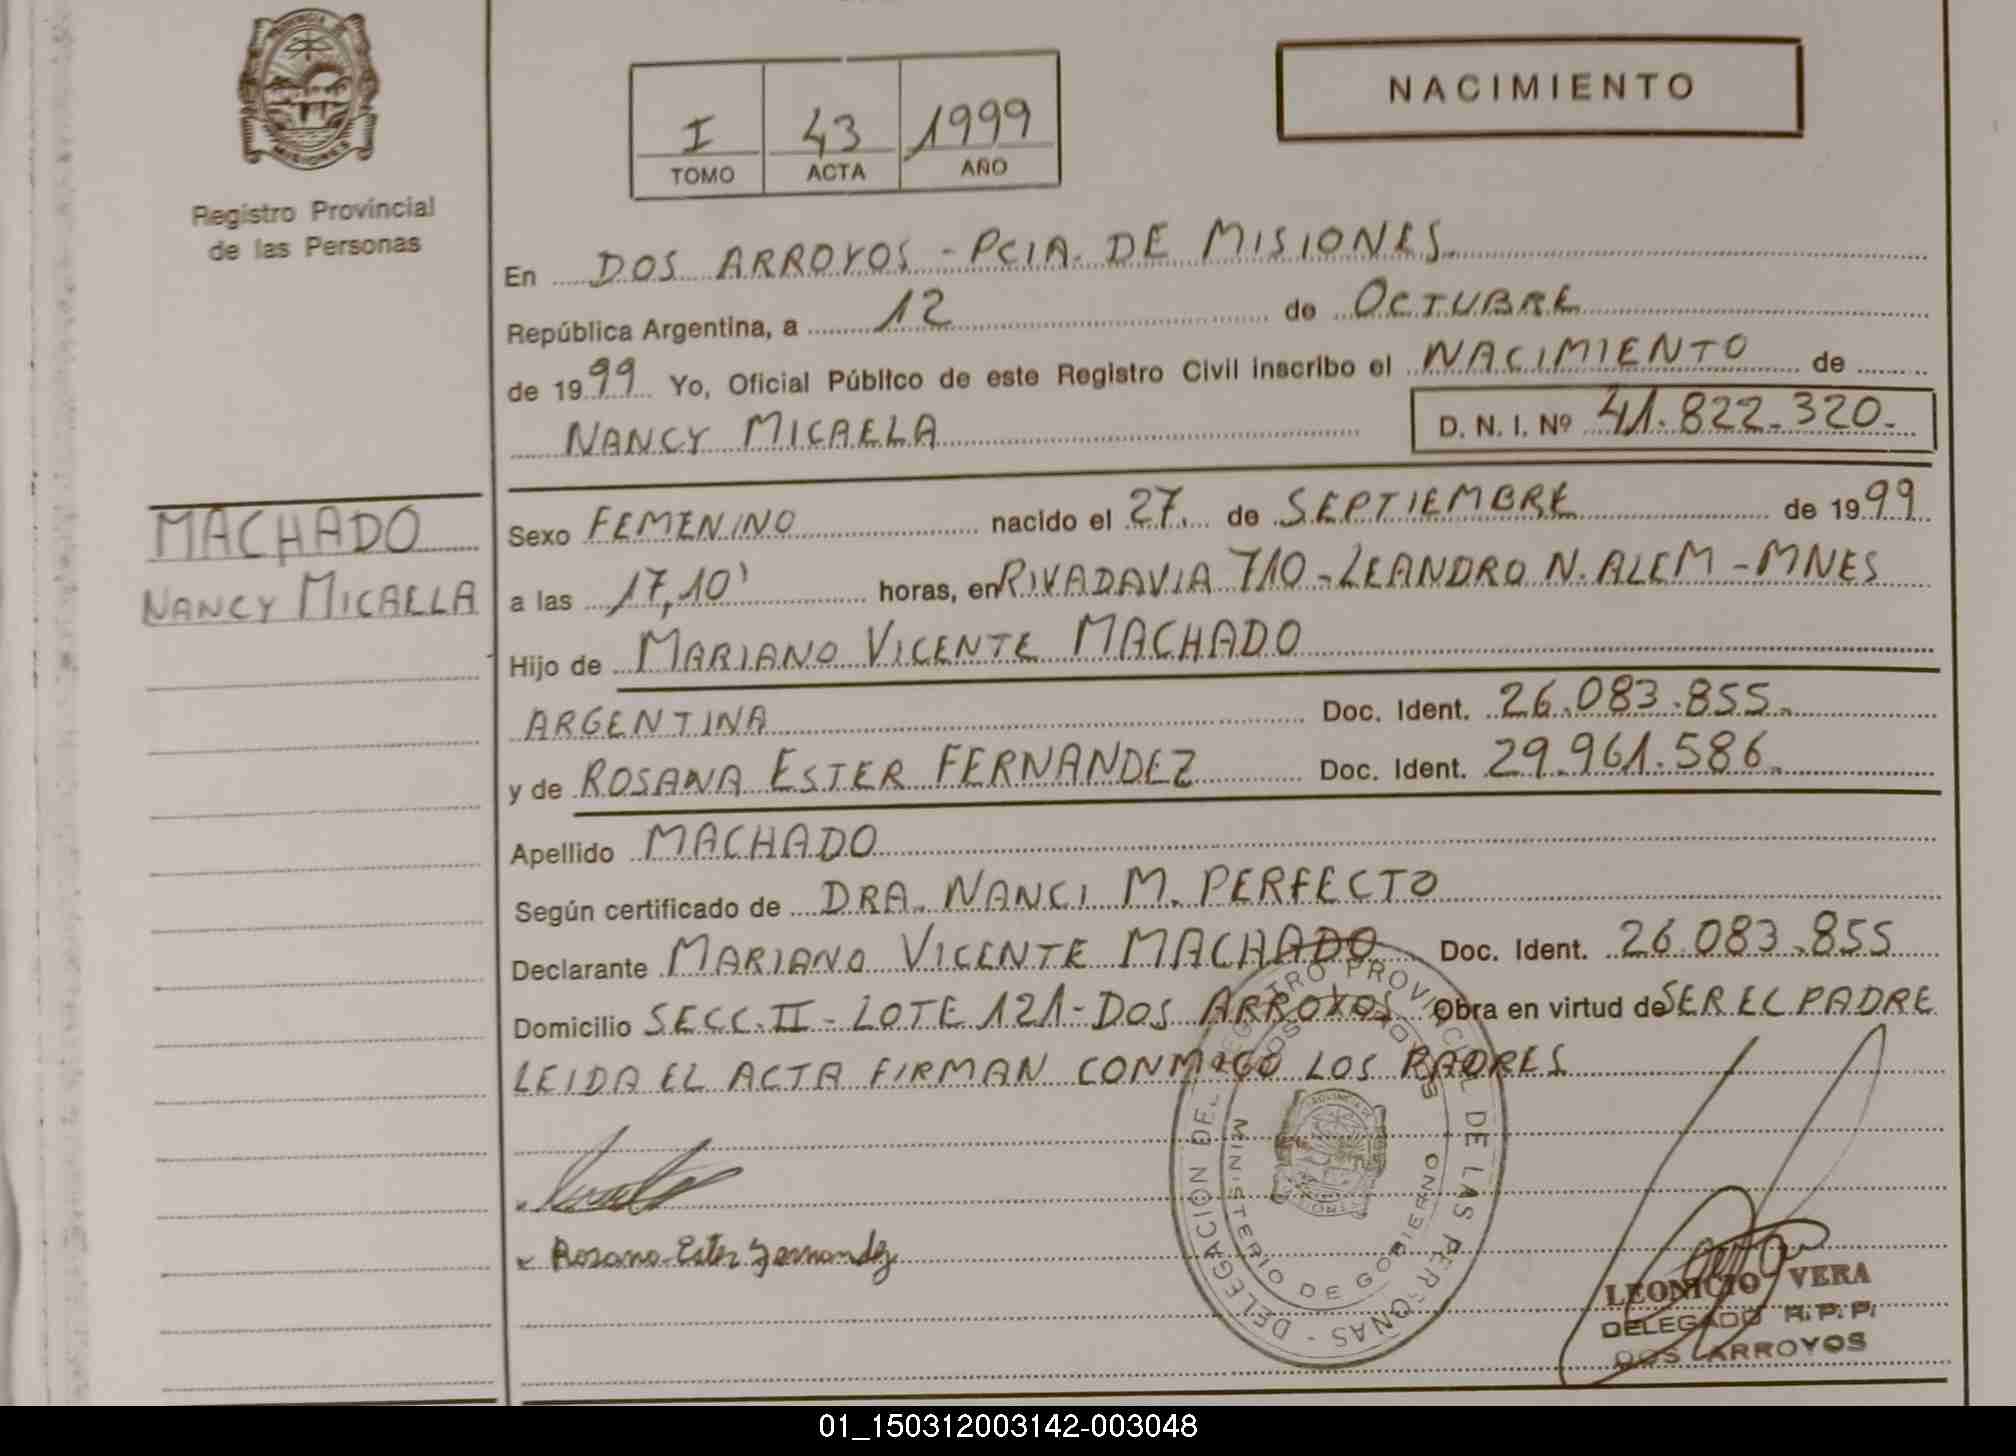 PROVINCIA DE
MISIONES
Registro Provincial
de las Personas
I 43 1999
TOMO ACTA AÑO
NACIMIENTO
En DOS ARROYOS - PCIA. DE MISIONES
República Argentina, a 12 de OCTUBRE
de 1999 Yo, Oficial Público de este Registro Civil inscribo el NACIMIENTO de
NANCY MICAELA D. N. I. Nº 41.822.320.-
MACHADO
NANCY MICAELA
Sexo FEMENINO nacido el 27. de SEPTIEMBRE de 1999
a las 17,10' horas, en RIVADAVIA 710 - LEANDRO N. ALEM - MNES
Hijo de MARIANO VICENTE MACHADO
ARGENTINA Doc. Ident. 26.083.855.-
y de ROSANA ESTER FERNANDEZ Doc. Ident. 29.961.586.
Apellido MACHADO
Según certificado de DRA. NANCI M. PERFECTO
Declarante MARIANO VICENTE MACHADO Doc. Ident. 26.083.855
Domicilio SECC. II - LOTE 121 - DOS ARROYOS Obra en virtud de SER EL PADRE
LEIDA EL ACTA FIRMAN CONMIGO LOS PADRES
Rosana Ester Fernandez
DELEGACION DEL REGISTRO PROVINCIAL DE LAS PERSONAS -
DOS ARROYOS
MINISTERIO DE GOBIERNO
LEONICIO VERA
DELEGADO R.P.P.
DOS ARROYOS
01_150312003142-003048